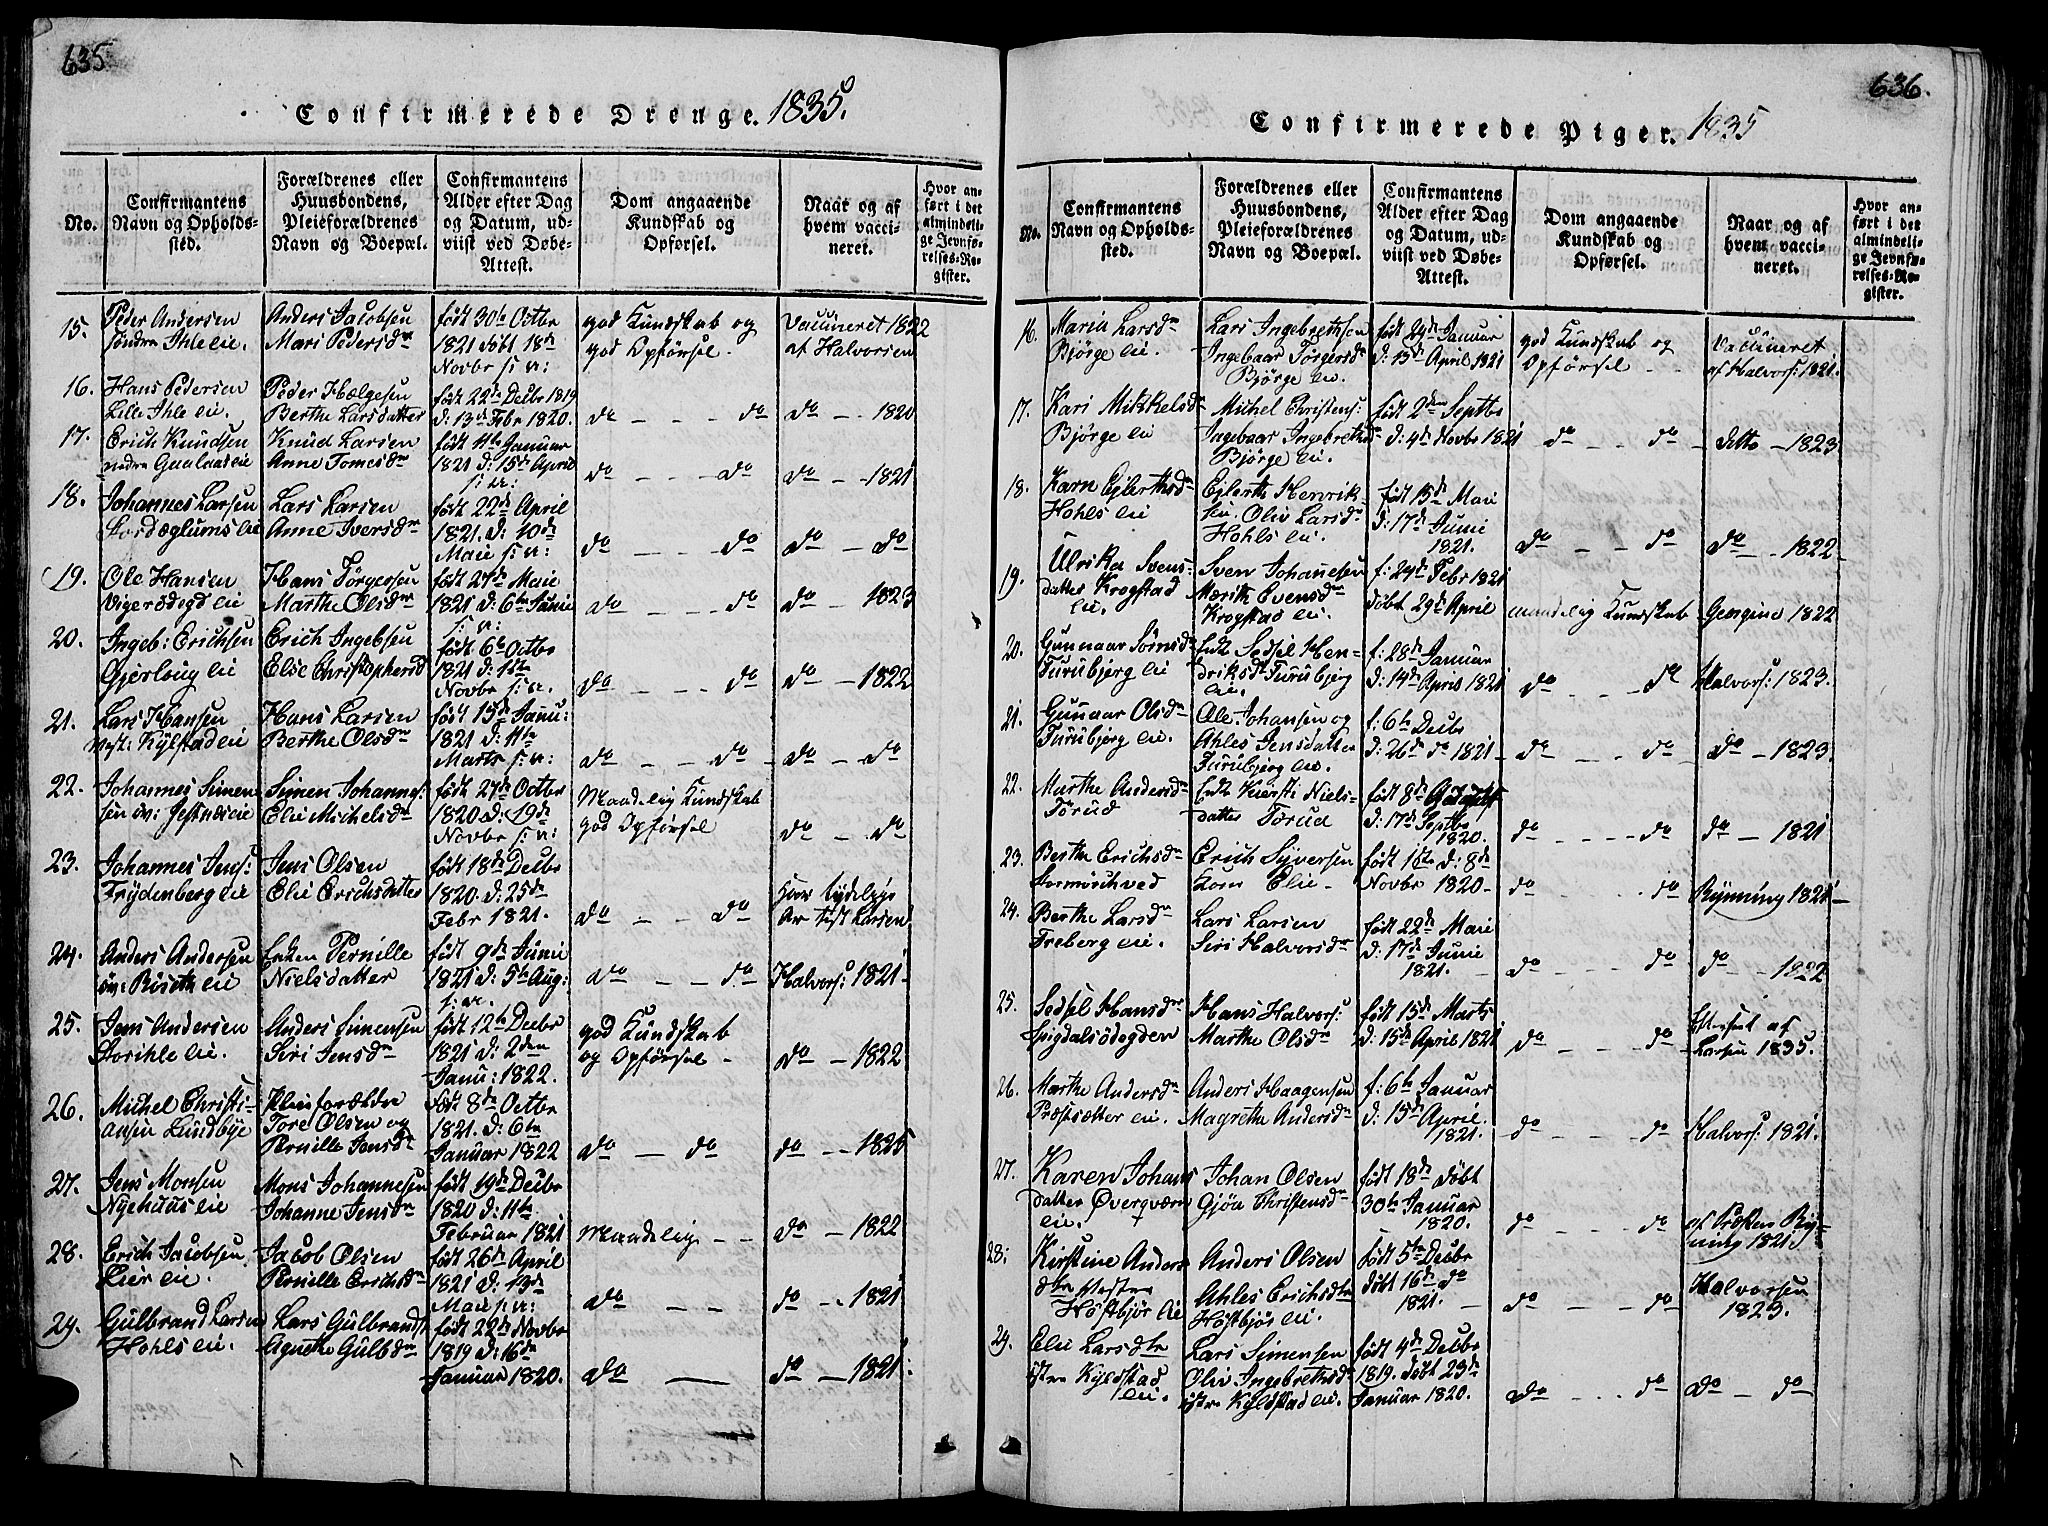 635
Confirmerede Drenge. 1835.
No.
Confirmantens
Navn og Opholds-
sted.
Forældrenes eller
Huusbondens,
Pleieforældrenes
Navn og Boepæl.
Confirmantens
Alder efter Dag
og Datum, ud-
viist ved Døbe-
Attest.
Dom angaaende
Kundskab og
Opførsel.
Naar og af
hvem vacci-
neret.
Hvor an-
ført i det
almindeli-
ge Jevnfø-
relses-Re-
gister.
15. Peder Andersen
søndre Ihle eie.
Anders Jacobsen
Mari Pedersdr
født 30te Octbr
1821 døbt 18de
Novbr s: v:
god Kundskab og
god Opførsel.
Vaccineret 1822
af Halvorsen
16. Hans Pedersen
Lille Ihle eie.
Peder Helgesen
Berthe Larsdatter
født 22de Decbr 1819
d: 13de Febr 1820.
do - - - do
do - - 1820
17. Erich Knudsen
nedre Gaalaas eie
Knud Larsen
Anne Tomesdr
født 11te Januar
1821 d: 15de April
s: v:
do - - - do
do - - 1821
18. Johannes Larsen
Lars Larsen
Anne Iversdr
født 22de April
1821. d: 10de
Maie s: v:
do - - - do
do - do
19. Ole Hansen
eie
Hans Törgersen
Marthe Olsdr
født 27de Maie
1821 d: 6te Junie
s: v:
do - - - do
do - - 1823
20. Ingeb: Erichsen
Gjerlaug eie
Erich Ingebsen
Else Christophersd
født 6te Octbr
1821 d: 1ste
Novbr s: v.
do - - - do
do - 1822
21. Lars Hansen
vest: Kylstad eie
Hans Larsen
Berthe Olsdr
født 15de Janu:
1821 d: 11te
Marts s: v:
do - - do
do - do
22. Johannes Simen
sen öv: Jestnes eie
Simen Johannes:
Elie Michelsdr
født 27de Octbr
1820 d: 19de
Novbr s: v:
Maadelig Kundskab
god Opførsel
do - do
23. Johannes Jens:
Frydenberg eie
Jens Olsen
Elie Erichsdatter
født 18de Decbr
1820. d: 25de
Febr 1821.
do - - do
har tydelige
Ar tyst Larsen
24. Anders Andersen
öv: Riseth eie
Enken Pernille
Nielsdatter
født 9de Juni
1821 d: 5te Aug:
s: v:
do - - do
Halvors: 1821
25. Jens Andersen
Storihle eie.
Anders Simensen
Siri Jensdr
født 12te Decbr
1821 d: 2den
Janu: 1822.
god Kundskab
og Opførsel -
do - 1822
26. Michel Christi-
ansen Lundbye
Pleieforældre
Tore Olsen og
Pernille Jensdr
født 8de Octbr
1821. d: 6te
Januar 1822
do - do
do - - 1825
27. Jens Monsen
Nyehuus eie
Mons Johannesen
Johanne Jensdr
født 19de Decbr
1820 d: 11te
Februar 1821
Maadelig - -
do - 1822
28. Erich Jacobsen
Lier eie.
Jacob Olsen
Pernille Erichsdr
født 26de April
1821 d:
Maie s: v:
do - -
do - - 1821
29. Gulbrand Larsen
Hohls eie.
Lars Gulbrands
Agnethe Gulbdr
født 22de Novbr
1819 d: 16de
Januar 1820.
do -
do - 1821.
636.
Confirmerede Piger. 1835
No.
Confirmantens
Navn og Opholds-
sted.
Forældrenes eller
Huusbondens,
Pleieforældrenes
Navn og Boepæl.
Confirmantens
Alder efter Dag
og Datum, ud-
viist ved Døbe-
Attest.
Dom angaaende
Kundskab og
Opførsel.
Naar og af
hvem vacci-
neret.
Hvor an-
ført i det
almindeli-
ge Jevnfø-
relses-Re-
gister.
16. Maria Larsdr
Bjørge eie.
Lars Ingebrethsen
Ingebaar Torgersdr
Bjørge eie.
født Januar
d: 15de April 1821
god Kundskab og
Opførsel - -
Vaccineret
af Halvors: 1821.
17. Kari Mikkelsdr
Bjørge eie
Michel Christens:
Ingebaar Ingebrethsdr
Bjørge eie.
født 2den Septbr
d: 4de Novbr 1821
do - - do
ditto - 1823
18. Karn Ejlerthsdr
Hohls eie
Ejlerth Henrik-
sen. Oliv Larsdr
Hohls eie.
født 15de Mai
d: 17de Juni
1821.
do - - do
do - - 1822
19. Ulrika Svens-
datter Krogstad
eie.
Sven Johanesen
Mærith Evensdr
Krogstad eie.
f: 24de Febr 1821
døbt 29de April
maadelig Kundskab
1822
20. Gunnaar Sørnsdr
Furubjerg eie
Enke Sedsel Hen-
driksdr Furubjerg
eie.
f: 28de Januar
d: 14de April 1821
do - - - do
Halvors: 1823.
21. Gunnar Olsdr
Furubjerg eie.
Ole Johansen og
Ahles Jensdatter
Furubjerg eie.
f: 6te Decbr
d: 26de do 1821
do - - do
do - 1823.
22. Marthe Andersdr
Törud
Enke Kiersti Niels-
datter Törud
født 8de August
d: 17de Septbr
1820.
do - - - do
do - 1821
23. Berthe Erichsdr
Erich Syversen
Karn Elie -
født 1ste d: 8de
Novbr 1820 -
do - - do
Rynning 1821 -
24. Berthe Larsdr
Freberg eie.
Lars Larsen
Siri Halvorsdr
født 22de Mai
d: 17de Junie
1821.
do - - do
do - - 1822
25. Sedsel Hansdr
Sigdalsödegden
Hans Halvors:
Marthe Olsdr
født 15de Marts
d: 15de April 1821
do - - do
Efterseet af
Larsen 1835.
26. Marthe Andersdr
Præstsætter eie.
Anders Haagensen
Magrethe Andersdr
f: 6te Januar
d: 15de April.
1821.
do - - do
Halvors: 1821.
27. Karen Johans
datter Övergværn
eie.
Johan Olsen
Gjøa Christensdr
født 18de døbt
30te Januar
1820.
do - - do
af Præsten Ryn-
ning 1821.
28. Kirstine Anders
dtr Vestre
Höstbjör eie
Anders Olsen
Ahles Erichsdtr
Höstbjör eie.
født 5te Decbr
døbt 16de do
1821. -
do - - do
Halvorsen
1823.
29. Elie Larsdtr
östre Kyldstad
eie.
Lars Simensen
Oliv Ingebrethsdr
østre Kyldstad eie.
født 4de Decbr
1819. døbt 23de
Januar 1820.
do - - do
do - do